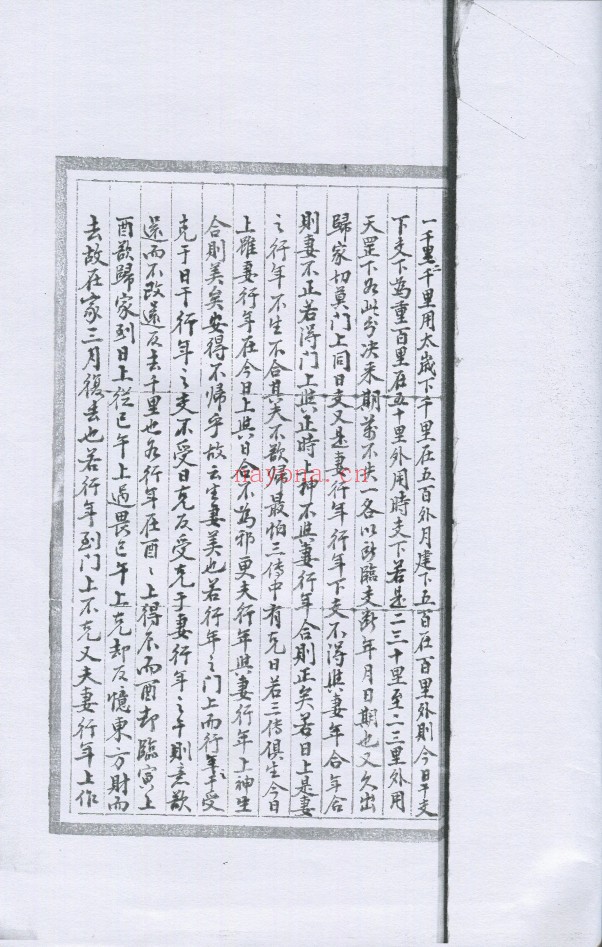 一千里二千里用太歲下千里在五百外月建下五百在百里外則今日支
下支下為重百里在五十里外用時支下若是二三十里至二三里外用
天罡下如此分决來期萬不失一各以所臨支断年月日期也又久出
歸家切莫門上同日支又是妻行年行年下支不得與妻年合年合
則妻不正若得門上與正時上神不與妻行年合則正矣若日上是妻
之行年不生不合其夫不欲歸最怕三傳中有克日若三傳俱生今日
上雖妻行年在今日上與日合不為邪更夫行年與妻行年上神生
合則美矣安得不帰乎故云室妻美也若行年之門上而行年干受
克于日干行年之支不受日克反受克于妻行年之干則意欲
還而不改還反去千里也如行年在酉酉上得辰而酉却臨寅上
酉欲歸家到日上從巳午上過畏巳午上克却反憶東方財而
去故在家三月復去也若行年到門上不克又夫妻行年上作
nayona.cn